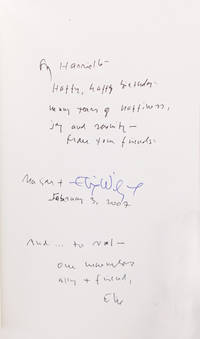 Happy, happy birthday
many years of happiness,
joy and serenity —
from your friends.
Marion + Elie Wiesel
February 3, 2002
And... to
our
ally + friend,
Elie